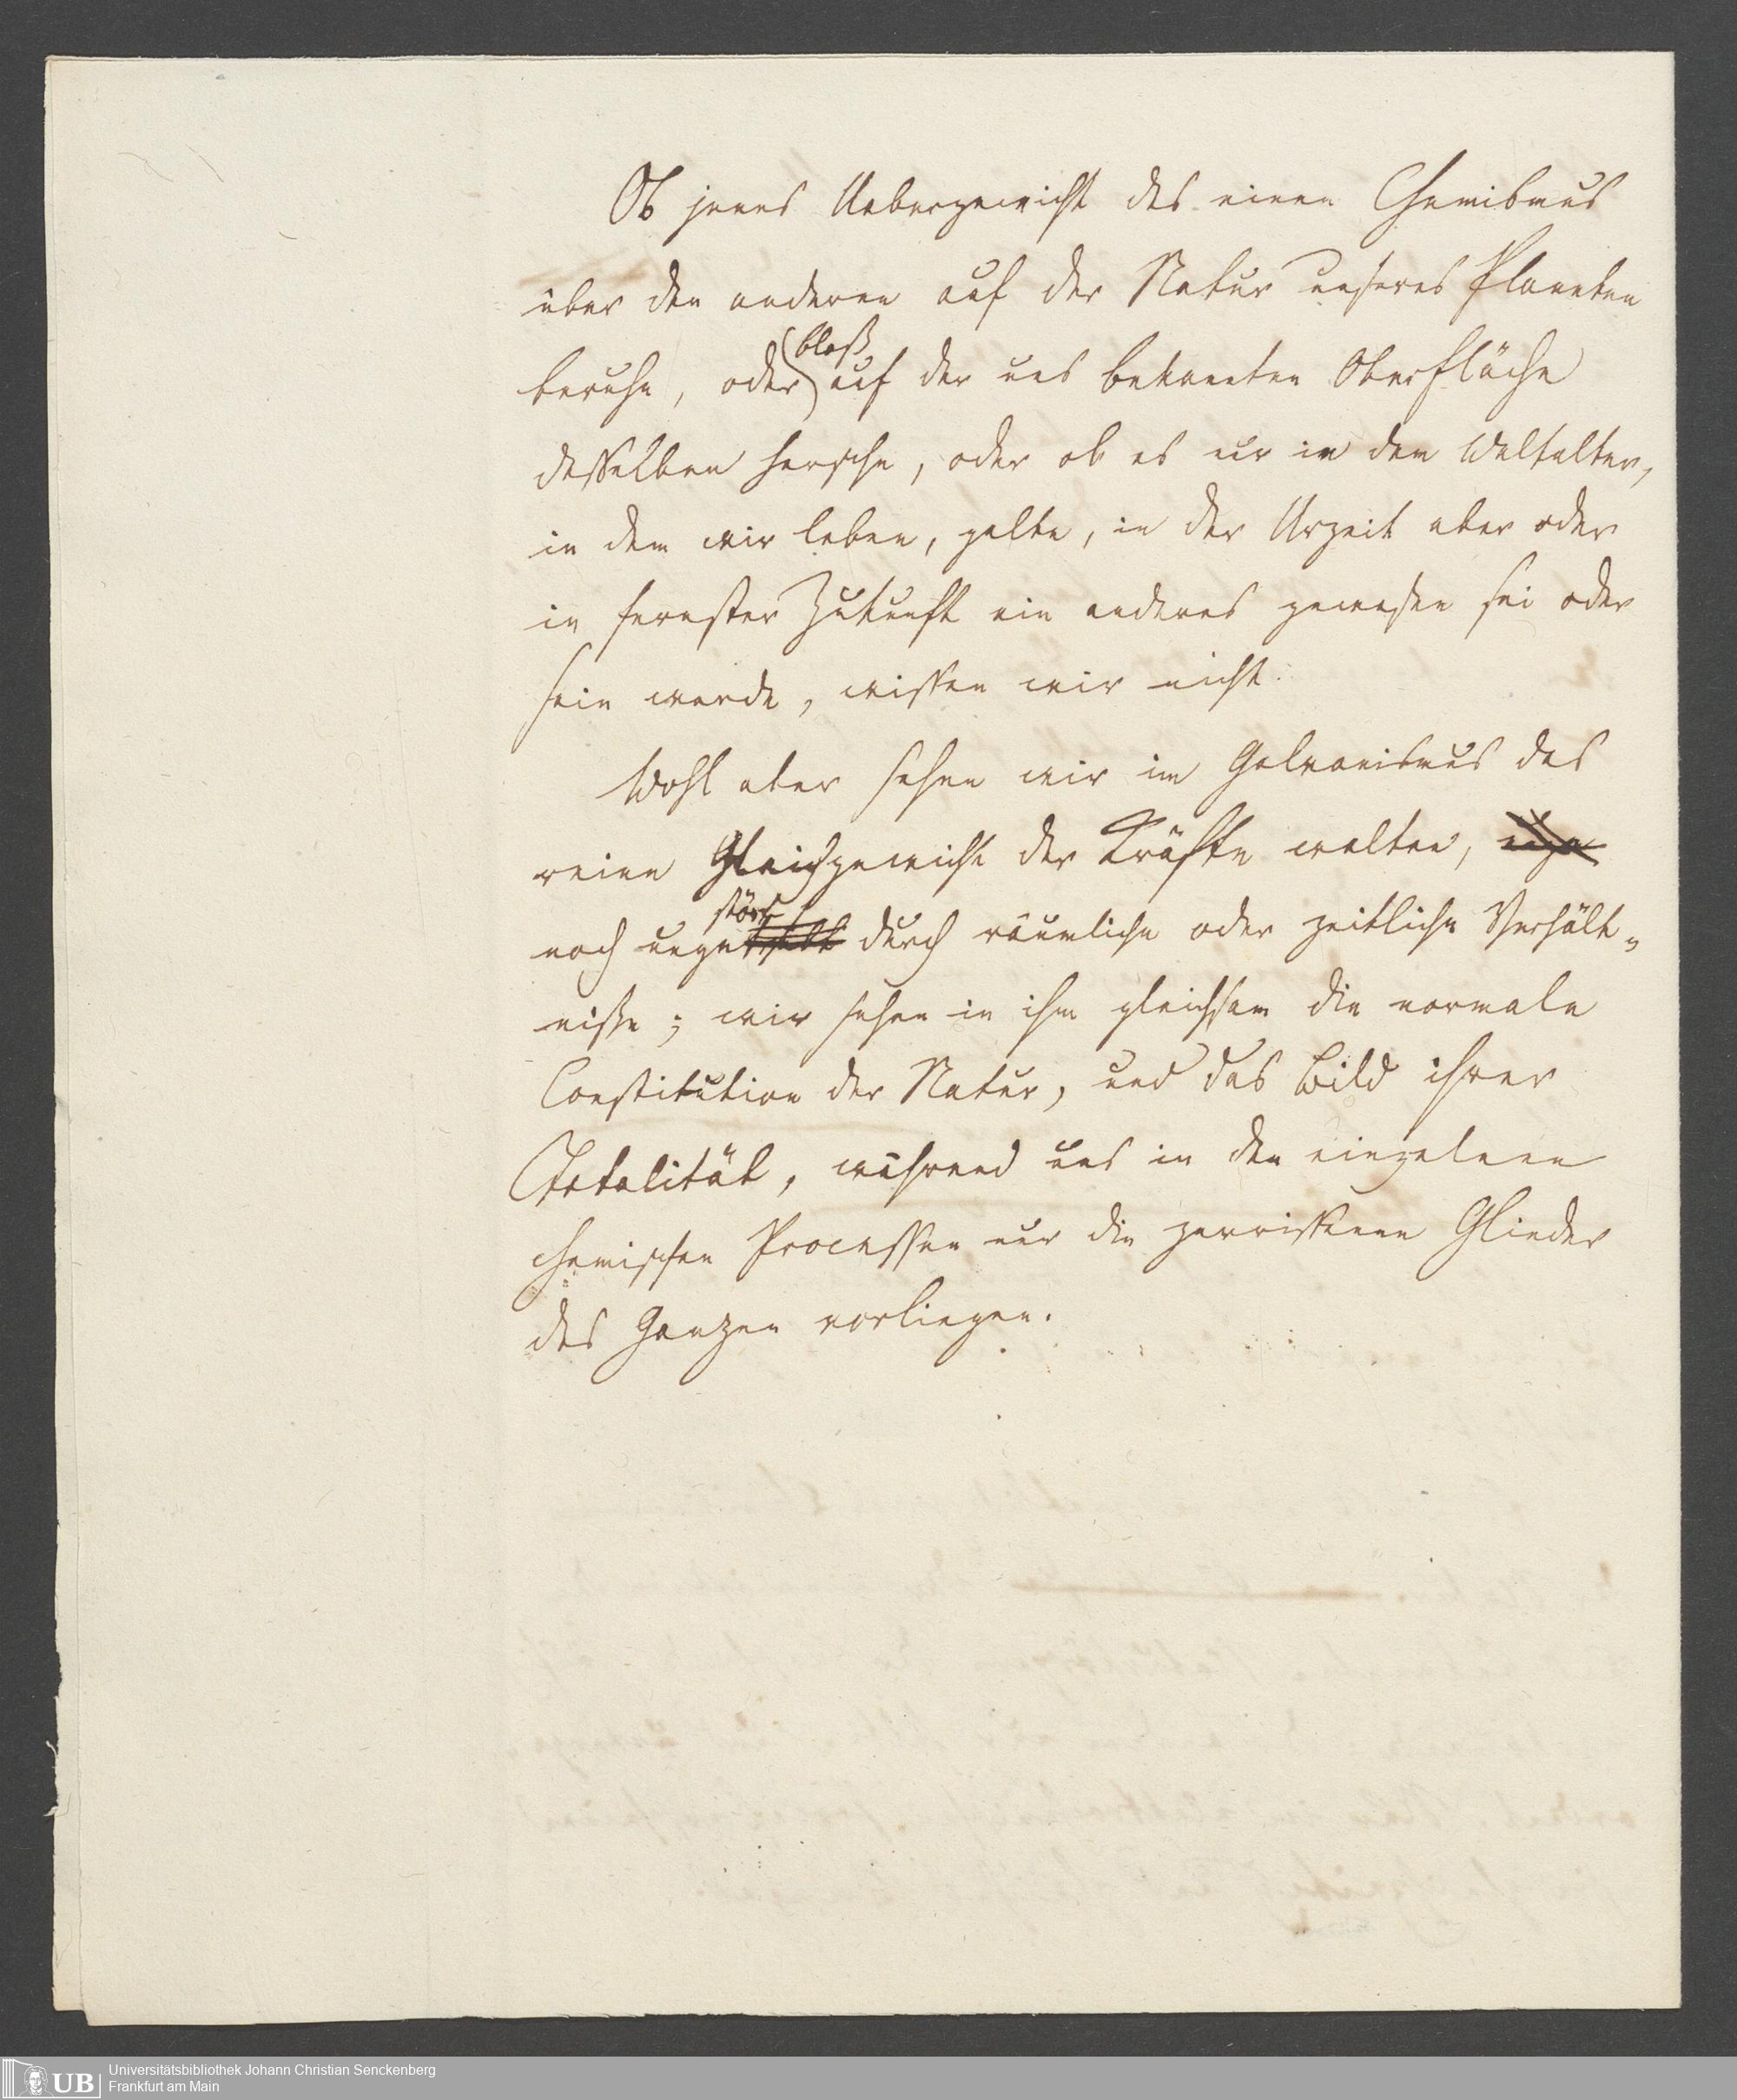 Ob jenes Uebergewicht des einen Chemismus
über den anderen auf der Natur unseres Planeten
beruhe, oder bloß auf der uns bekannten Oberfläche
desselben hersche, oder ob es nur in dem Weltalter,
in dem wir leben, gelte, in der Urzeit aber oder
in fernster Zukunft ein anderes gewesen sei oder
sein werde, wissen wir nicht.
Wohl aber sehen wir im Galvanismus das
reine Gleichgewicht der Kräfte walten,
noch ungestört durch räumliche oder zeitliche Verhält-
nisse; wir sehen in ihm gleichsam die normale
Constitution der Natur, und das Bild ihrer
Totalität, während uns in den einzelnen
chemischen Processen nur die zerrissenen Glieder
des Ganzen vorliegen.
UB
Universitätsbibliothek Johann Christian Senckenberg
Frankfurt am Main